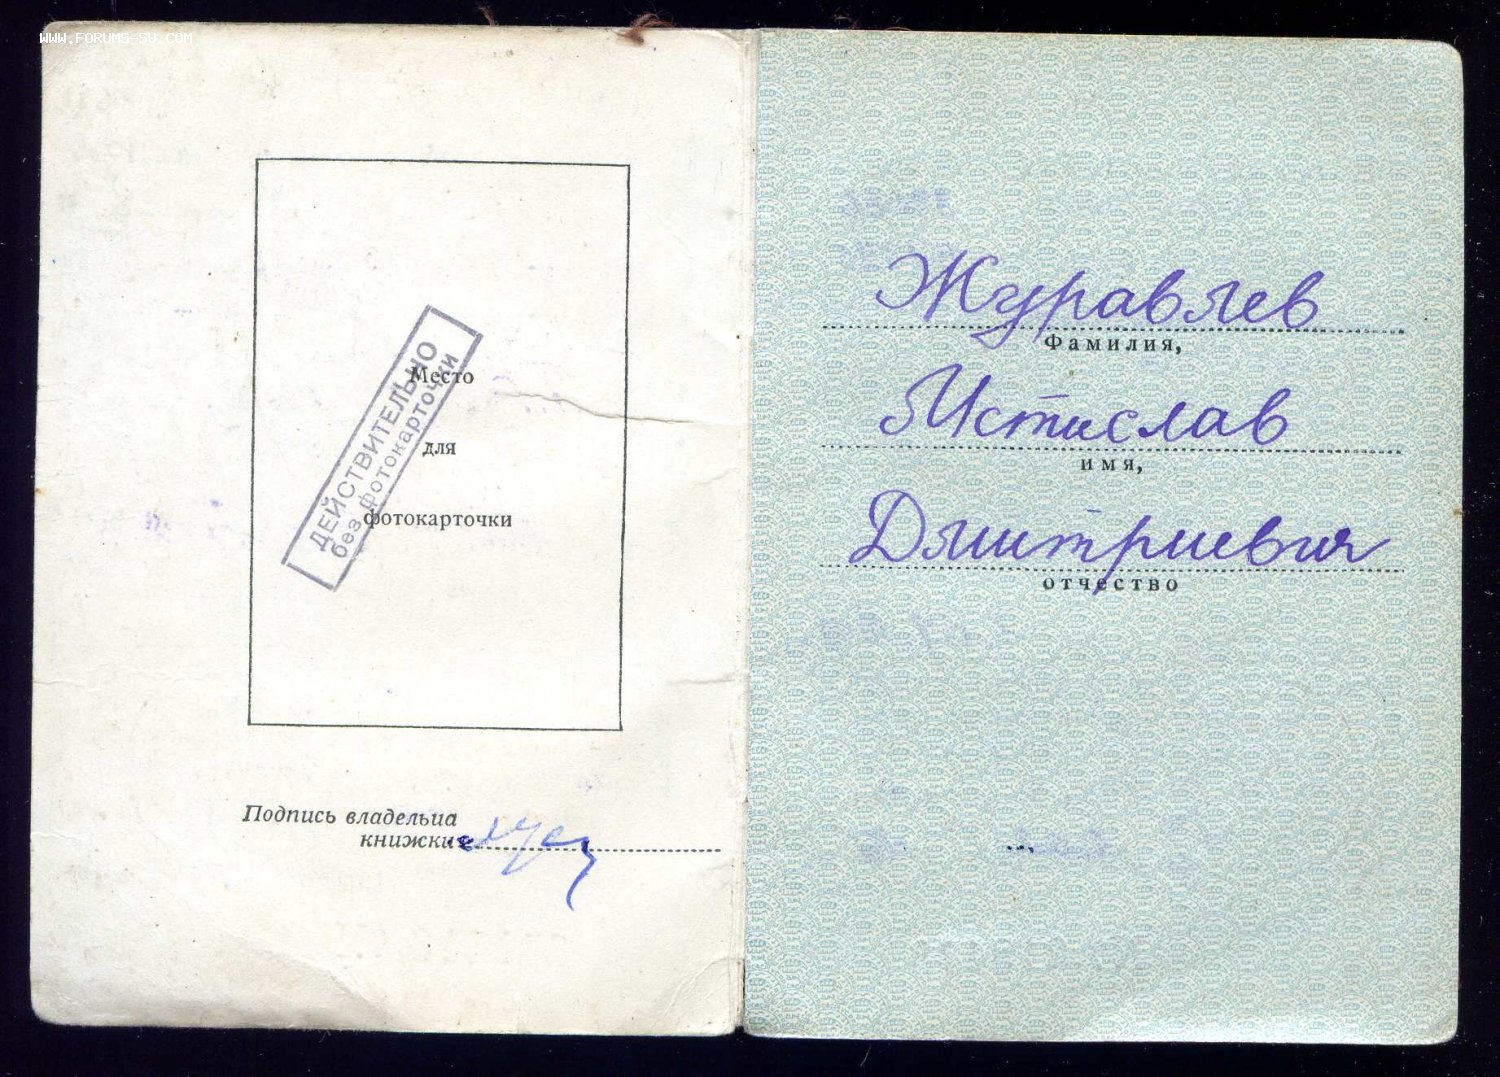 WWW.FORUMS-SU.COM
ДЕЙСТВИТЕЛЬНО
без фотокарточки
Место
для
фотокарточки
Подпись владельца
книжки
Журавлев
Фамилия,
Мстислав
имя,
Дмитриевич
отчество